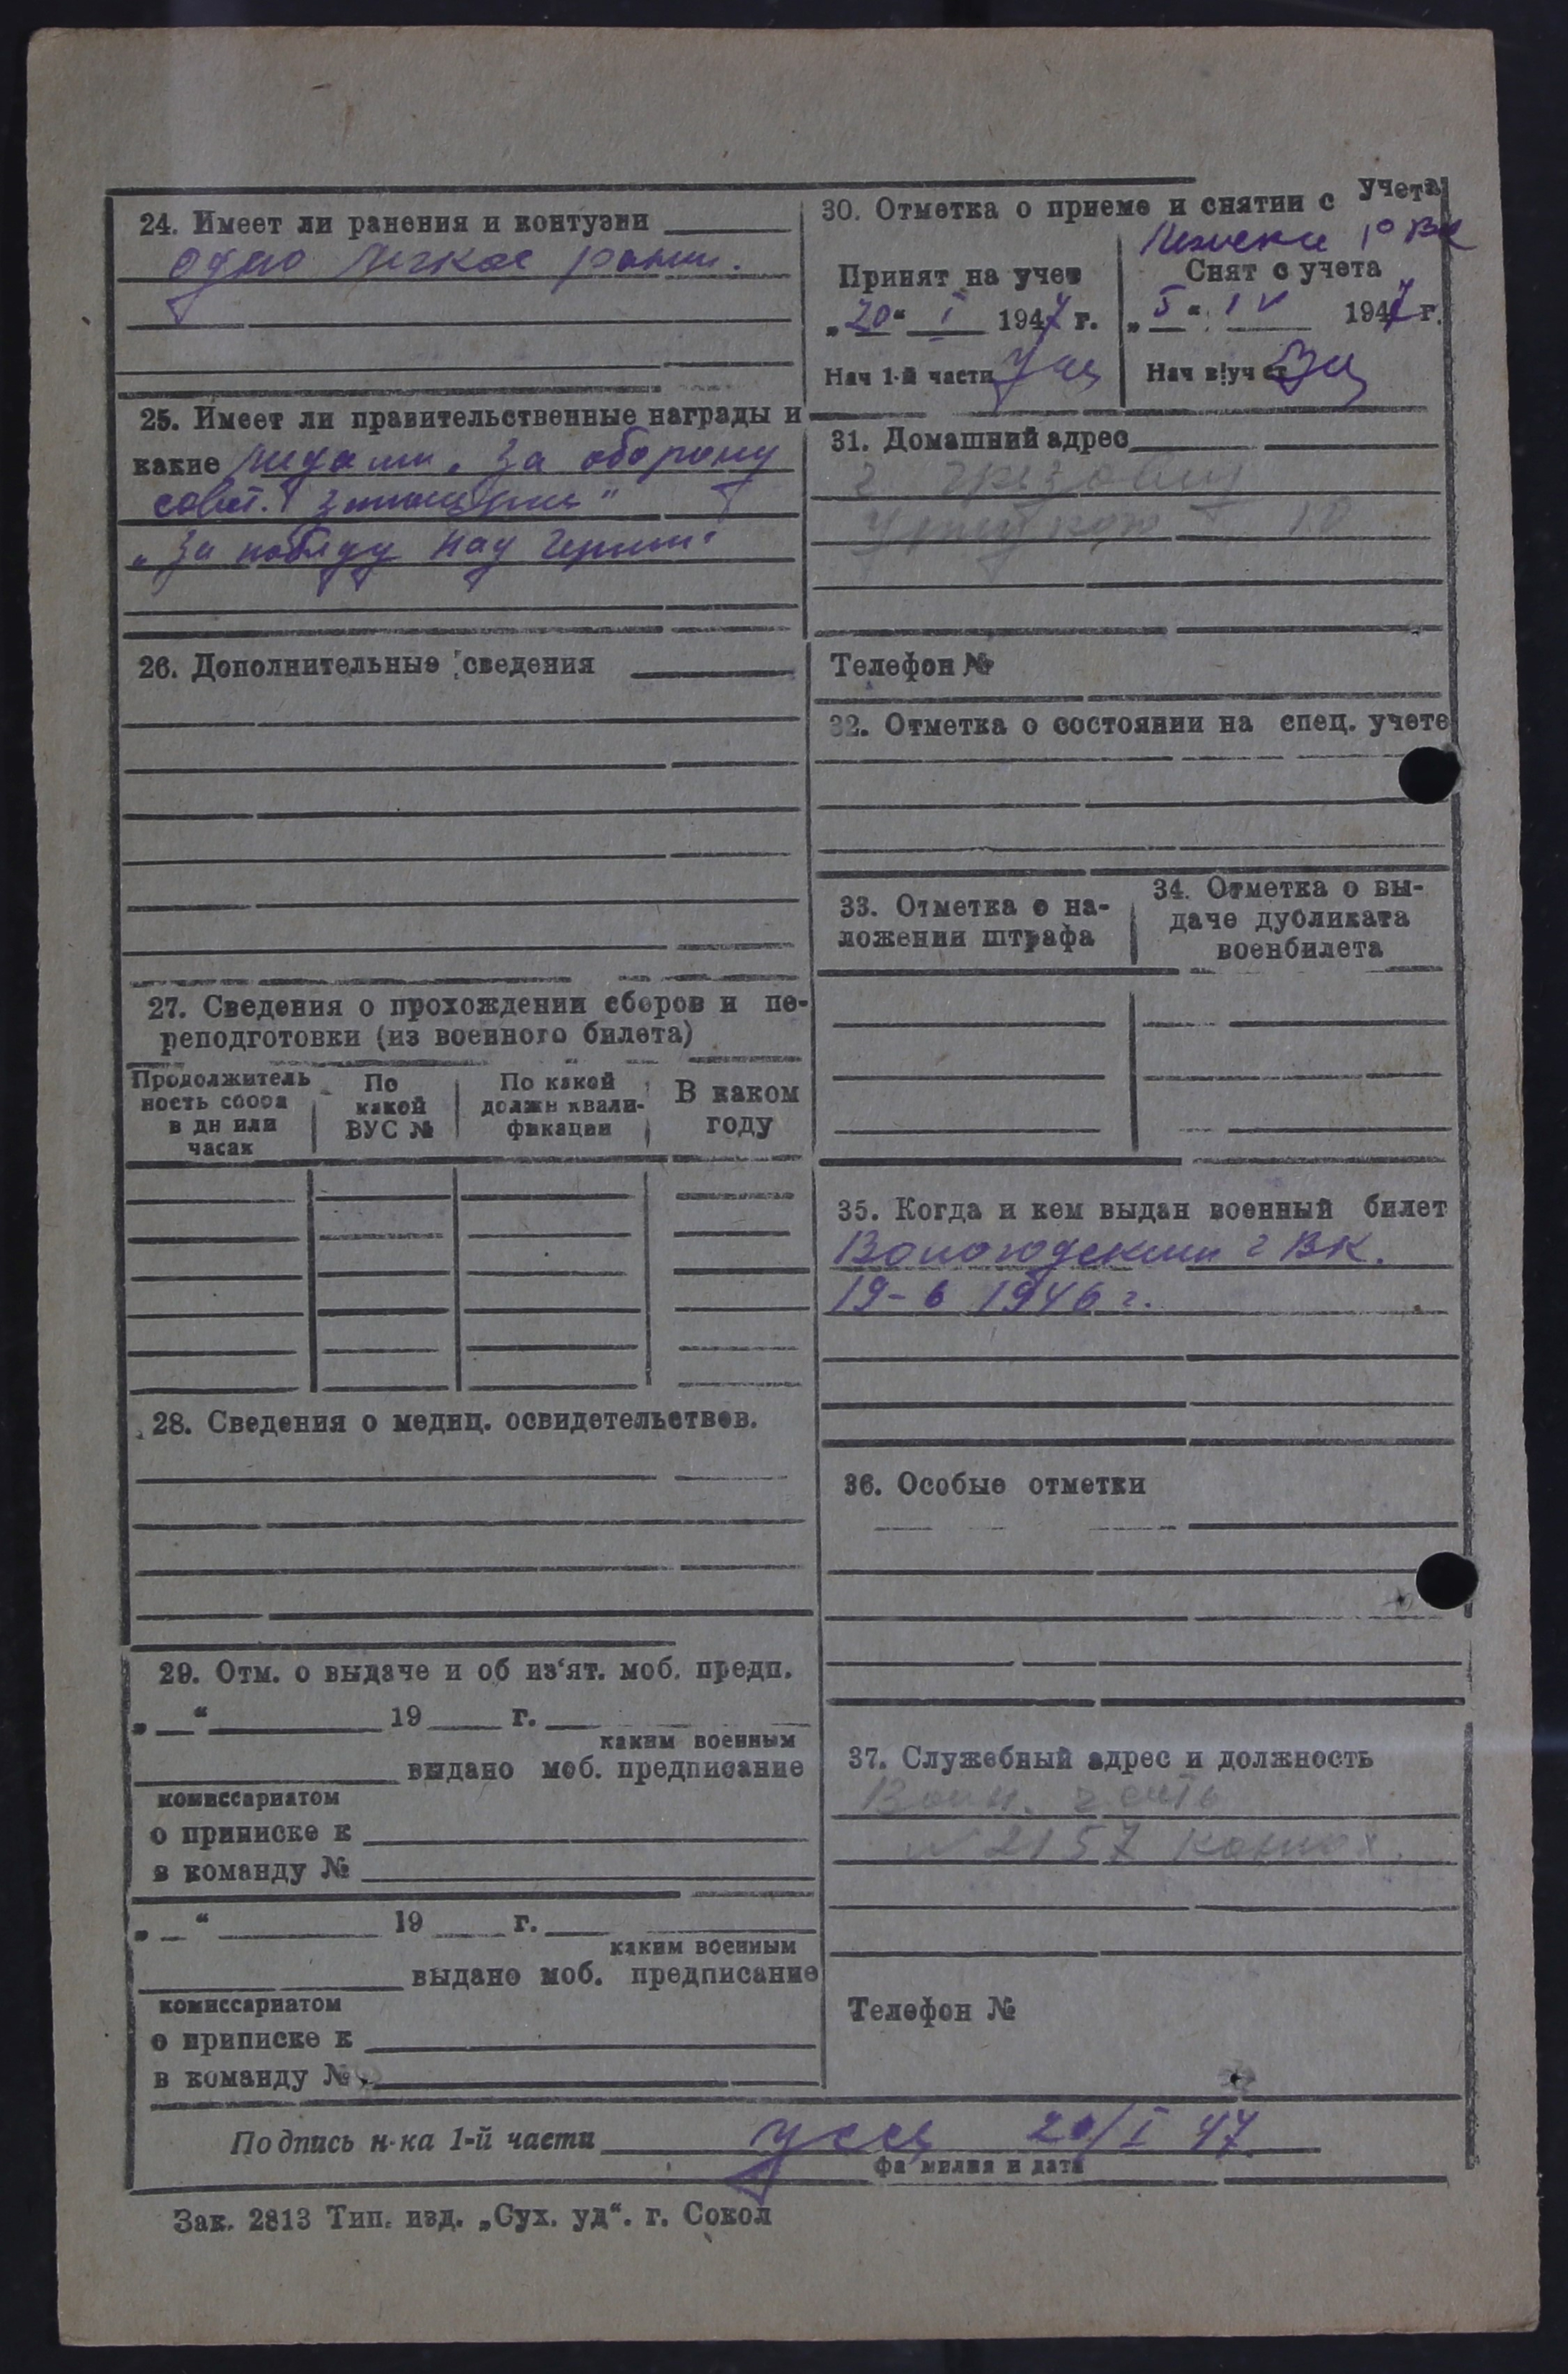 24. Имеет ли ранения и контузии
одно легкое ранен.
25. Имеет ли правительственные награды и
какие медали „За оборону
совет. заполярья"
„За победу над Герман."
26. Дополнительные сведения
27. Сведения о прохождении сборов и пе-
реподготовки (из военного билета)
Продолжитель
ность сбора
в дн или
часах
По
какой
ВУС №
По какой
должн квали-
фикации
В каком
году
28. Сведения о медиц. освидетельствов.
29. Отм. о выдаче и об из'ят. моб. предп.
„ “ 19 г.
каким военным
выдано моб. предписание
комиссариатом
о приписке к
в команду №
„ “ 19 г.
каким военным
выдано моб. предписание
комиссариатом
о приписке к
в команду №
30. Отметка о приеме и снятии с учета
РВК
Принят на учет
„20“ I 1947 г.
Нач 1-й части
Снят с учета
„5“ IV 1947 г.
Нач в|уч ст
31. Домашний адрес
г.
10
Телефон №
32. Отметка о состоянии на спец. учете
33. Отметка о на-
ложении штрафа
34. Отметка о вы-
даче дубликата
военбилета
35. Когда и кем выдан военный билет
Вологодским г ВК.
19-6 1946 г.
36. Особые отметки
37. Служебный адрес и должность
Воин. часть
№ 2157
Телефон №
Подпись н-ка 1-й части 20/I 47
фамилия и дата
Зак. 2813 Тип. изд. „Сух. уд“. г. Сокол